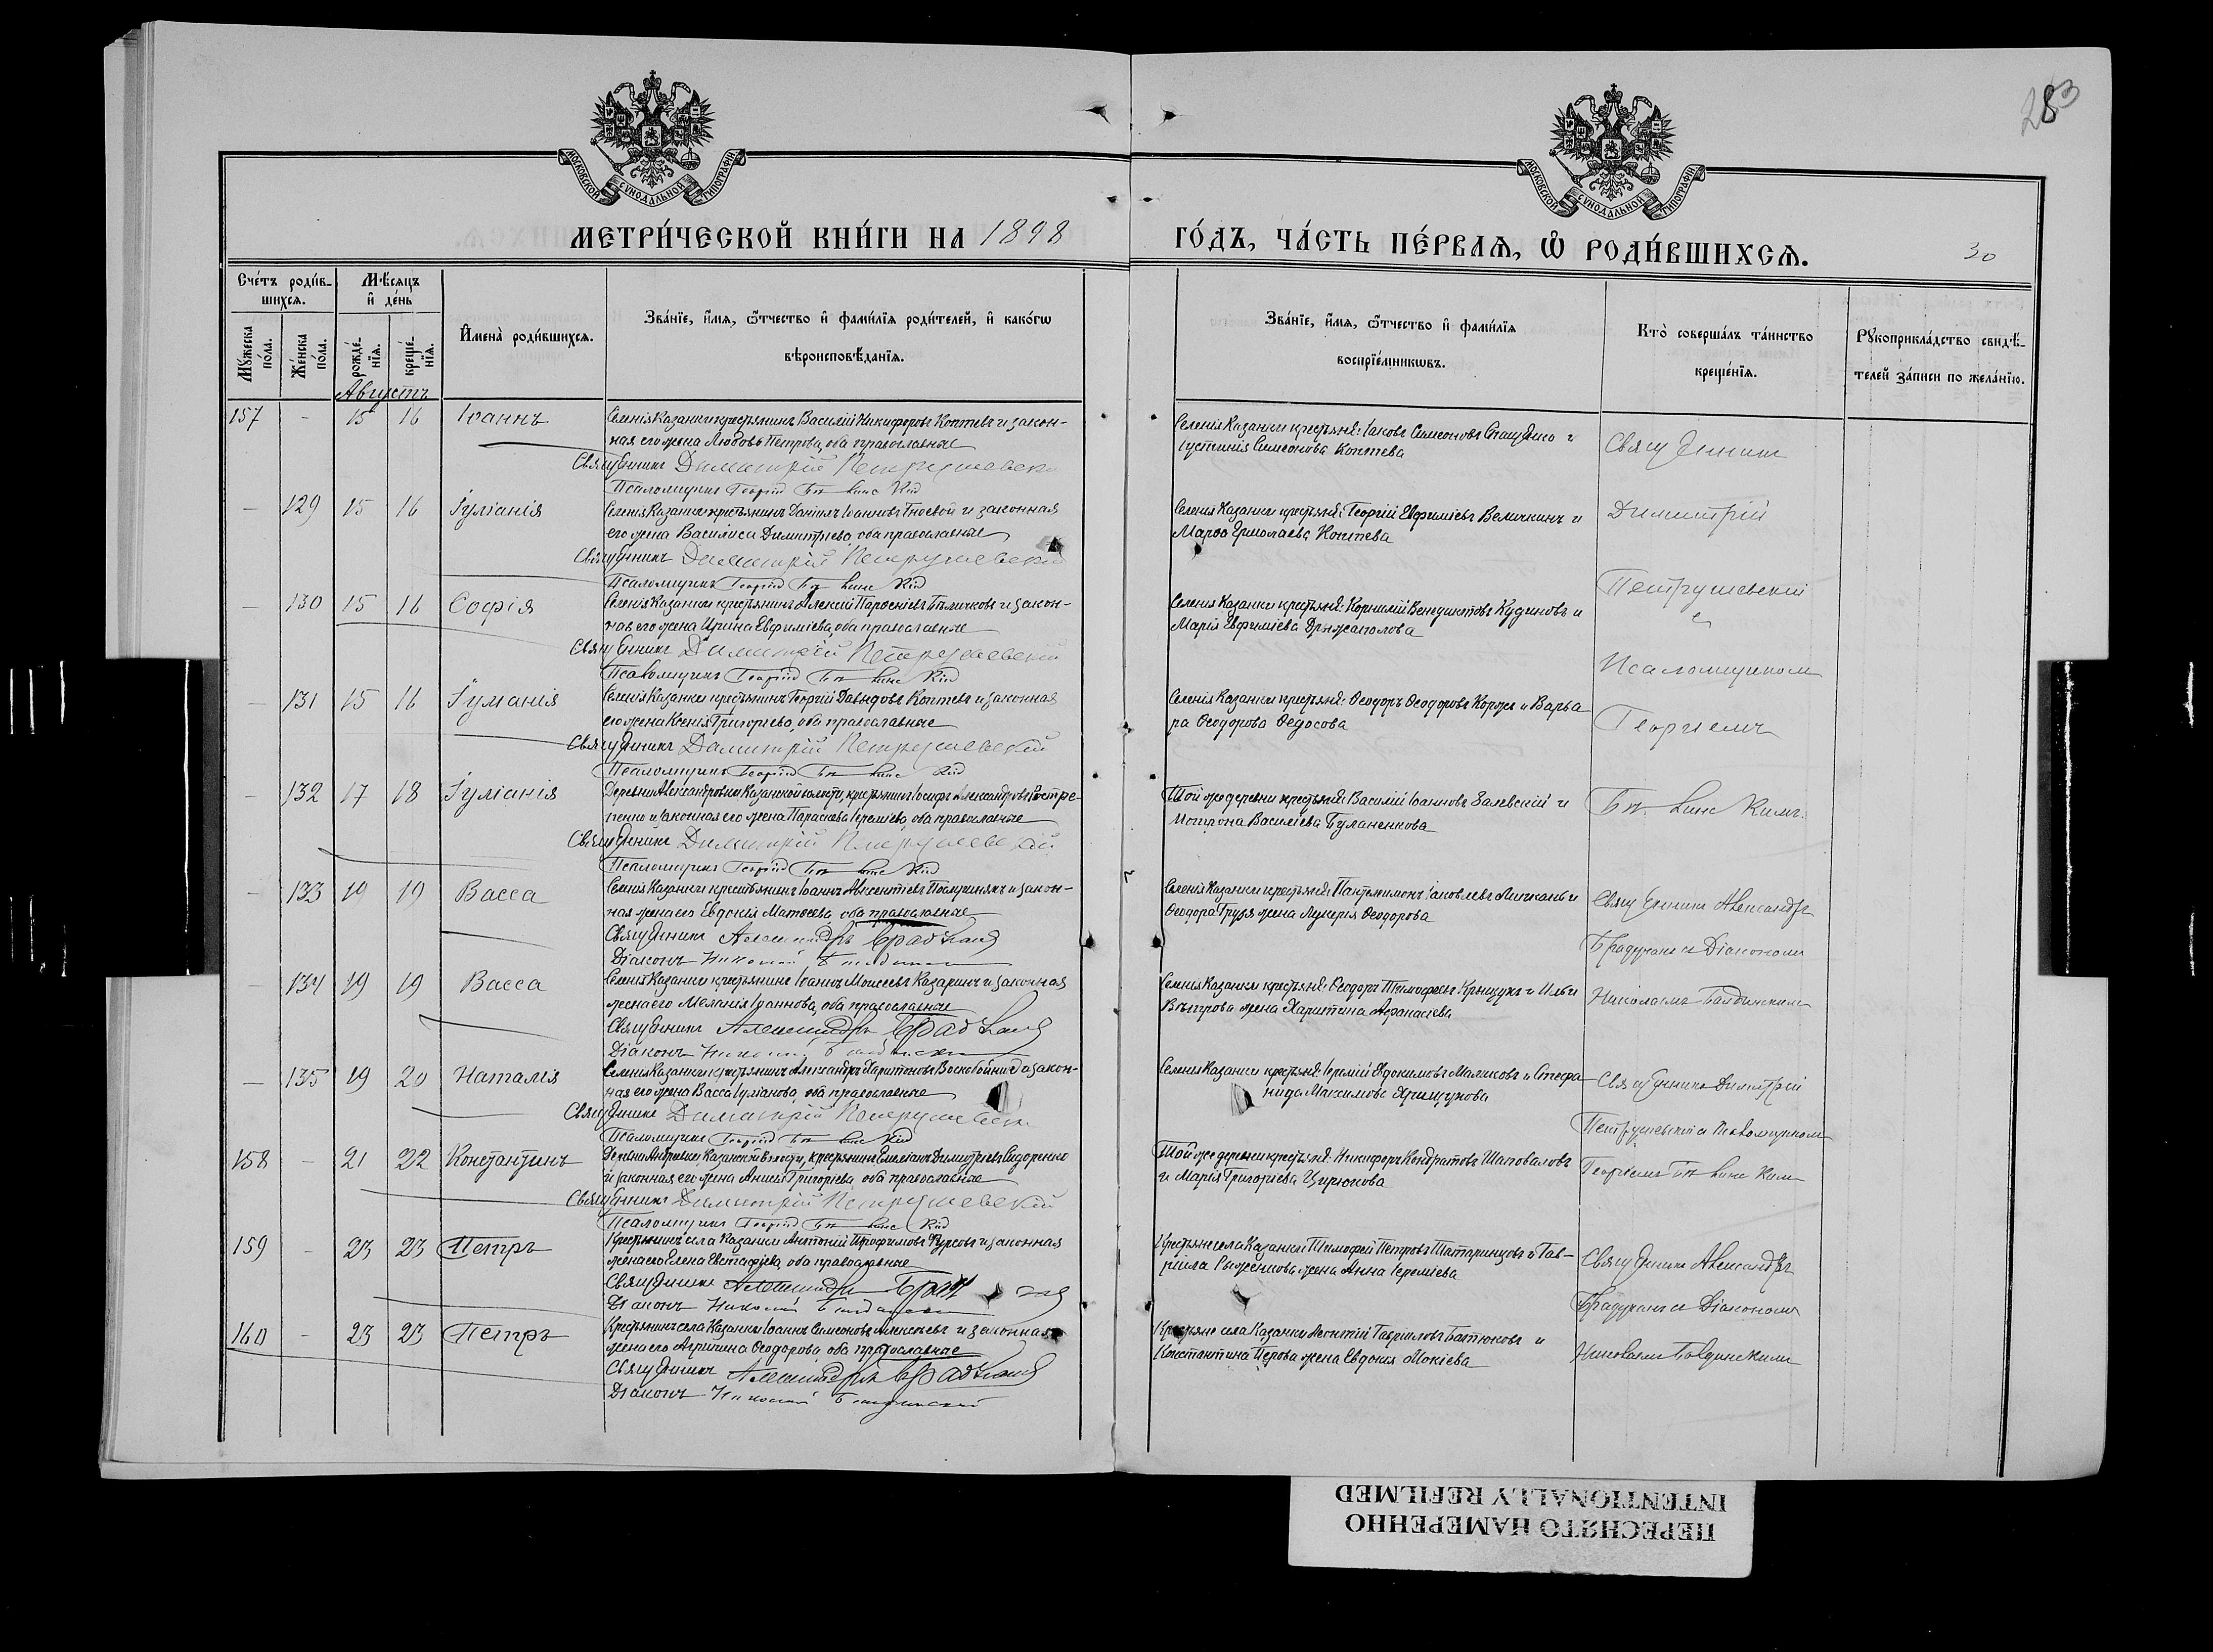 283
МОСКОВСКОЙ СУНОДАЛЬНОЙ ТИПОГРАФІИ
МОСКОВСКОЙ СУНОДАЛЬНОЙ ТИПОГРАФІИ
МЕТРИ́ЧЕСКОЙ КНИ́ГИ НА 1898
ГО́ДЪ, ЧА́СТЬ ПЕ́РВАѦ, Ѡ РОДИ́ВШИХСѦ.
30
Счéтъ роди́в-
шихсѧ.
Мѣ́сѧцъ
и҆ дéнь
Мꙋ́жеска
по́ла.
Же́нска
по́ла.
рожде́-
нїѧ.
креще́-
нїѧ.
И҆мена̀ роди́вшихсѧ.
Зва́нїе, и҆́мѧ, ѻ҆́тчество и҆ фами́лїѧ роди́телей, и҆ како́гѡ
вѣроисповѣ́данїѧ.
Зва́нїе, и҆́мѧ, ѻ҆́тчество и҆ фами́лїѧ
воспрїе́мникѡвъ.
Кто̀ соверша́лъ та́инство
креще́нїѧ.
Рꙋкоприкла́дство свидѣ́-
телей за́писи по жела́нїю.
Августъ
157 - 15 16 Іоаннъ
Селенія Казанки крестьянинъ Василій Никифоровъ Коптевъ и закон-
ная его жена Любовь Петрова, оба православные
Священникъ Димитрій Петрушевскій
Псаломщикъ Георгій
Селенія Казанки крестьяне: Іаковъ Симеоновъ и
Іустинія Симеонова Коптева
Священник
- 129 15 16 Іуліанія
Селенія Казанки крестьянинъ Даніилъ Іоанновъ Гноевой и законная
его жена Василиса Димитріева, оба православные
Священникъ Димитрій Петрушевскій
Псаломщикъ Георгій
Селенія Казанки крестьяне: Георгій Евфиміевъ Величкинъ и
Марѳа Ермолаева Коптева
Димитрій
- 130 15 16 Софія
Селенія Казанки крестьянинъ Алексій Парѳеніевъ Бѣличковъ и закон-
ная его жена Ирина Евфиміева, оба православные
Священникъ Димитрій Петрушевскій
Псаломщикъ Георгій
Селенія Казанки крестьяне: Корнилій Венедиктовъ Кудиновъ и
Марія Евфиміева
Петрушевскій
с
Псаломщиком
- 131 15 16 Іуліанія
Селенія Казанки крестьянинъ Георгій Давидовъ Коптевъ и законная
его жена Ксенія Григорьева, оба православные
Священникъ Димитрій Петрушевскій
Псаломщикъ Георгій
Селенія Казанки крестьяне: Ѳеодоръ Ѳеодоровъ и Варва-
ра Ѳеодорова Ѳедосова
Георгіемъ
- 132 17 18 Іуліанія
Деревни Александровки Казанской волости, крестьянинъ Іосифъ Александровъ
и законная его жена Параскева Іереміева, оба православные
Священникъ Димитрій Петрушевскій
Псаломщикъ Георгій
Той же деревни крестьяне: Василій Іоанновъ Залевскій и
Матрона Василіева Буланенкова
- 133 19 19 Васса
Селенія Казанки крестьянинъ Іоаннъ Авксентіевъ и закон-
ная жена его Евдокія Матѳеева, оба православные
Священникъ Александръ
Діаконъ Николай
Селенія Казанки крестьяне: Пантелеимонъ Іаковлевъ и
Ѳеодора жена Ѳеодорова
Священникъ Александръ
с Діакономъ
- 134 19 19 Васса
Селенія Казанки крестьянинъ Іоаннъ Моисеевъ Казаринъ и законная
жена его Меланія Іоаннова, оба православные
Священникъ Александръ
Діаконъ Николай
Селенія Казанки крестьяне: Ѳеодоръ Тимоѳеевъ и Ильи
Вѣтрова жена Харитина Аѳанасіева
Николаемъ
- 135 19 20 Наталія
Селенія Казанки крестьянинъ Александръ Харитоновъ Воскобойник и закон-
ная его жена Васса Іуліанова, оба православные
Священникъ Димитрій Петрушевскій
Псаломщикъ Георгій
Селенія Казанки крестьяне: Іеремій Евдокимовъ Маликовъ и Стефа-
нида Максимова
Священникъ Димитрій
Петрушевскій с Псаломщиком
158 - 21 22 Константинъ
Деревни Андреевки, Казанской волости, крестьянинъ Емеліанъ Димитріевъ Сидоренко
и законная его жена Анисія Григоріева, оба православные
Священникъ Димитрій Петрушевскій
Псаломщикъ Георгій
Той же деревни крестьяне: Никифоръ Кондратовъ Шаповаловъ
и Марія Григоріева Цирюкова
Георгіемъ
159 - 23 23 Петръ
Крестьянинъ села Казанки Антоній Трофимовъ Фурсовъ и законная
жена его Елена Евстафіева, оба православные
Священникъ Александръ
Діаконъ Николай
Крестьяне села Казанки Тимофей Петровъ Татаринцовъ и Гав-
ріила жена Анна Іереміева
Священникъ Александръ
с Діакономъ
160 - 23 23 Петръ
Крестьянинъ села Казанки Іоаннъ Симеоновъ Алексѣевъ и законная
жена его Агрипина Ѳеодорова, оба православные
Священникъ Александръ
Діаконъ Николай
Крестьяне села Казанки Леонтій Гавріиловъ Батюковъ и
Константина Перова жена Евдокія Мокіева
Николаемъ
ПЕРЕСНЯТО НАМЕРЕННО
INTENTIONALLY REFILMED